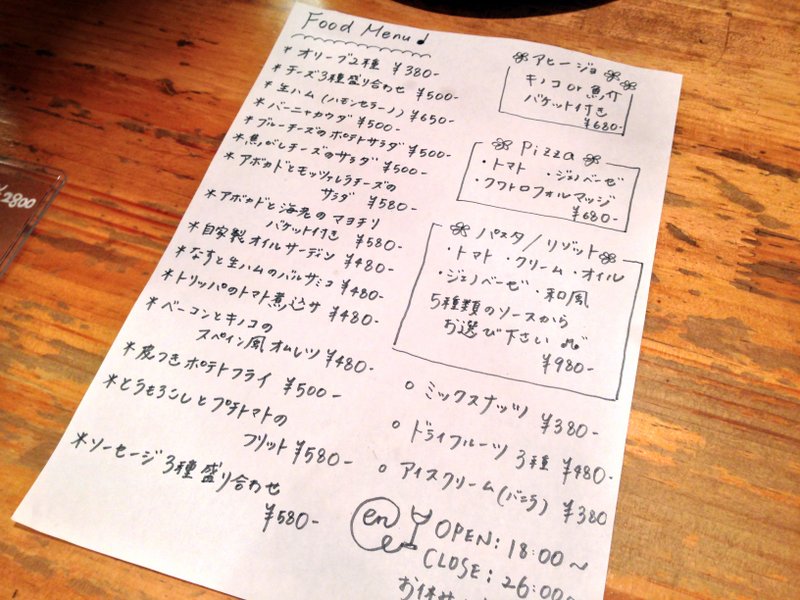 Food Menu♪
* オリーブ2種 ¥380-
* チーズ3種盛り合わせ ¥500-
* 生ハム (ハモンセラーノ) ¥650-
* バーニャカウダ ¥500-
* ブルーチーズのポテトサラダ ¥500-
* 焦がしチーズのサラダ ¥500-
* アボカドとモッツァレラチーズの
サラダ ¥580-
* アボカドと海老のマヨチリ
バケット付き ¥580-
* 自家製オイルサーディン ¥480-
* なすと生ハムのバルサミコ ¥480-
* トリッパのトマト煮込サ ¥480-
* ベーコンとキノコの
スペイン風オムレツ ¥480-
* 皮つきポテトフライ ¥500-
* とうもろこしとプチトマトの
フリット ¥580-
* ソーセージ3種盛り合わせ
¥580-
アヒージョ
キノコ or 魚介
バケット付き
¥680-
Pizza
・トマト ・ジェノベーゼ
・クワトロフォルマッジ
¥680-
パスタ/リゾット
・トマト・クリーム・オイル
・ジェノベーゼ・和風
5種類のソースから
お選び下さい♪
¥980-
○ ミックスナッツ ¥380-
○ ドライフルーツ 3種 ¥480-
○ アイスクリーム(バニラ) ¥380
en
OPEN: 18:00~
CLOSE: 26:00~
¥2800